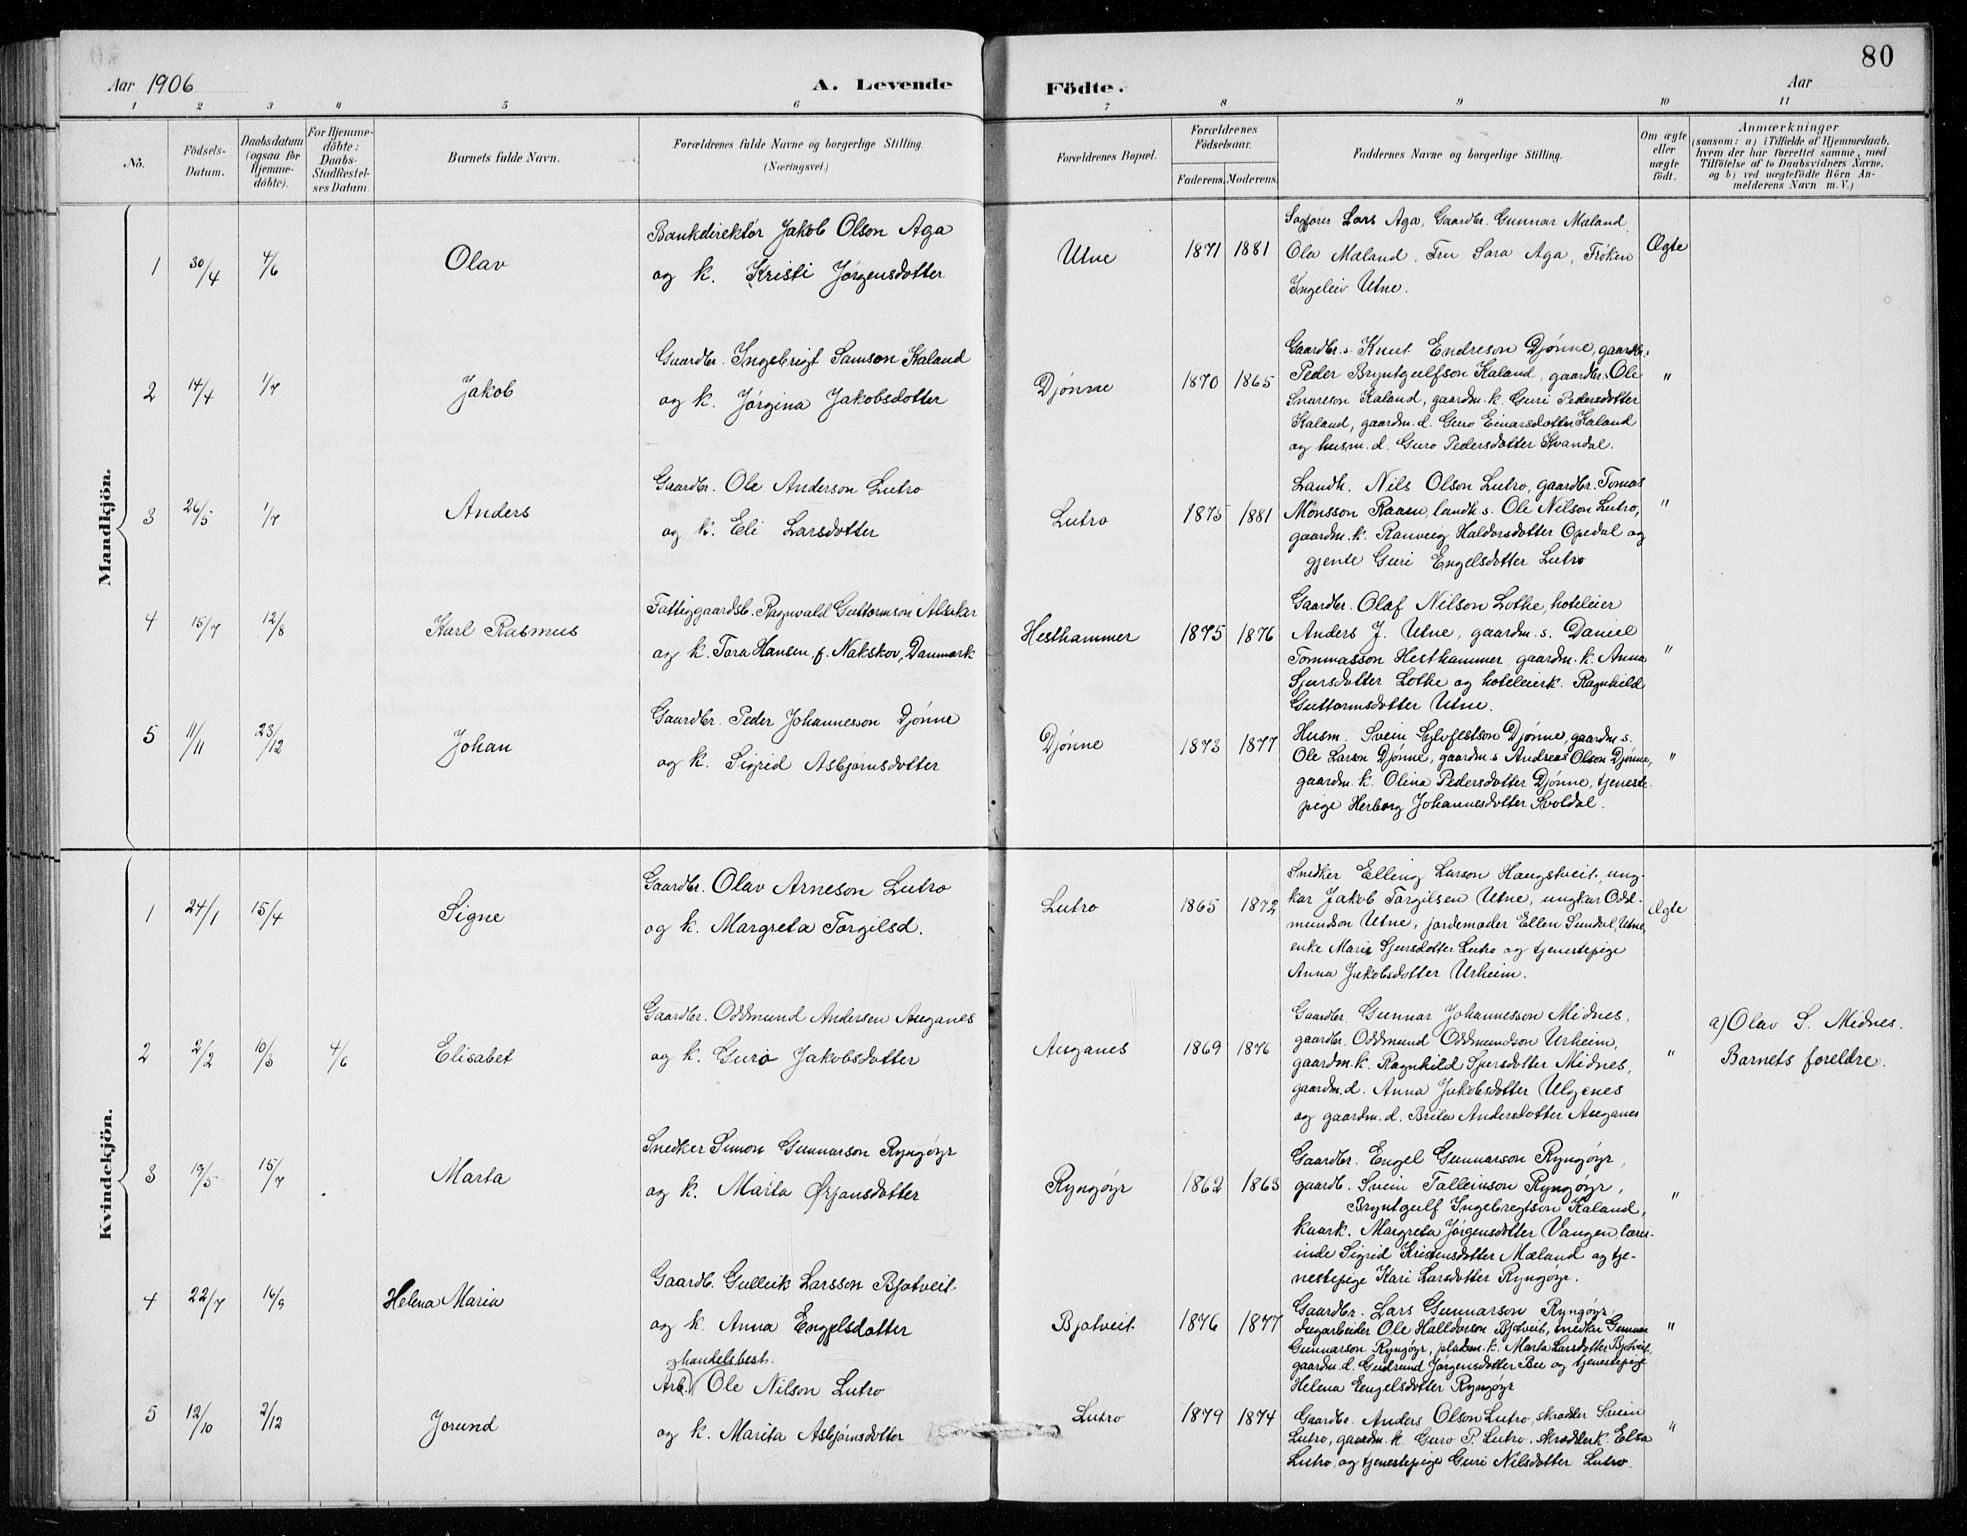 80
Aar 1906
A. Levende Födte.
Aar
1 2 3 4 5 6 7 8 9 10 11
Nö.
Födsels-
Datum.
Daabsdatum
(ogsaa for
Hjemme-
döbte).
For Hjemme-
döbte:
Daabs-
Stadfæstel-
ses Datum.
Barnets fulde Navn.
Forældrenes fulde Navne og borgerlige Stilling.
(Næringsvei.)
Forældrenes Bopæl.
Forældrenes
Födselsaar.
Faderens. Moderens.
Faddernes Navne og borgerlige Stilling.
Om ægte
eller
uægte
födt.
Anmærkninger
(saasom: a) i Tilfælde af Hjemmedaab,
hvem der har forrettet samme, med
Tilföielse af to Daabsvidners Navne,
og b) ved uægtefödte Börn An-
melderens Navn m. V.)
Mandkjön.
1 30/4 4/6 Olav
Bankdirektör Jakob Olson Aga
og k. Kristi Jørgensdotter
Utne 1871 1881
Sagförer Lars Aga, Gaardbr. Gunnar Mæland,
Ola Mæland, Fru Sara Aga, Frøken
Ingeleiv Utne.
Ægte
2 14/4 1/7 Jakob
Gaardbr. Ingebrigt Samson Kaland
og k. Jørgina Jakobsdotter
Djønne 1870 1865
Gaardbr. s. Knut Endreson Djønne, gaardbr. s.
Peder Bryntgulfson Kaland, gaardbr. s. Ole
Snareson Kaland, gaardm. k. Guri Pedersdotter
Kaland, gaardm. d. Guro Einarsdotter Kaland
og husm. d. Guro Pedersdotter Kvandal.
"
3 26/5 1/7 Anders
Gaardbr. Ole Anderson Lutro
og k. Eli Larsdotter
Lutro 1875 1881
Landh. Nils Olson Lutro, gaardbr. Tomas
Monsson Raaen, landh. s. Ole Nilson Lutro,
gaardm. k. Ranveig Haldorsdotter Opedal og
gjente Guri Engelsdotter Lutro
"
4 15/7 12/8 Karl Rasmus
Fattiggaardsb. Ragnvald Guttormson Alsaker
og k. Tora Hansen, f. Nakskov, Danmark
Hesthammer 1875 1876
Gaardbr. Olaf Nilson Lothe, hoteleier
Anders J. Utne, gaardm. s. Daniel
Tommasson Hesthammer, gaardm. k. Anna
Sjursdotter Lothe og hoteleierk. Ragnhild
Guttormsdotter Utne.
"
5 11/11 23/12 Johan
Gaardbr. Peder Johannesson Djønne
og k. Sigrid Asbjørnsdotter
Djønne 1873 1877
Husm. Svein Sylvfestson Djønne, gaardm. s.
Ole Larson Djønne, gaardm. s Andreas Olson Djønne,
gaardm. k. Olina Pedersdotter Djønne, tjeneste-
pige Herborg Johannesdotter Kvoldal.
"
Kvindekjön.
1 24/1 15/4 Signe
Gaardbr. Olav Arneson Lutro
og k. Margreta Torgilsd.
Lutro 1865 1872
Snedker Elling Larson Haugstveit, ung-
kar Jakob Torgilsen Utne, ungkar Odd-
mundson Utne, jordemoder Ellen Sundal, Utne,
enke Marie Sjursdotter Lutro og tjenestepige
Anna Jakobsdotter Urheim.
Ægte
2 2/2 10/3 4/6 Elisabet
Gaardbr. Oddmund Andersen Auganes
og k. Guro Jakobsdotter
Auganes 1869 1876
Gaardbr. Gunnar Johannesson Midnes,
gaardbr. Oddmund Oddmundson Urheim,
gaardm. k. Ragnhild Sjursdotter Midnes,
gaardm. d. Anna Jakobsdotter Ulgenes
og gaardm. d. Brita Andersdotter Auganes
"
a) Olav S. Midnes.
Barnets foreldre.
3 19/5 15/7 Marta
Snedker Simon Gunnarson Ryngøyr
og k. Marita Ørjansdotter
Ryngøyr 1862 1863
Gaardbr. Engel Gunnarson Ryngøyr,
gaardb. Svein Talleivson Ryngøyr,
Bryntgulf Ingebregtson Kaland,
kaark. Margreta Jørgensdotter Vangen, lærer-
inde Sigrid Kristensdotter Mæland og tje-
nestepige Kari Larsdotter Ryngøyr.
"
4 22/7 16/9 Helena Maria
Gaardb. Gulleik Larsson Bjotveit
og k. Anna Engelsdotter
Bjotveit 1876 1877
Gaardbr. Lars Gunnarson Ryngøyr,
dagarbeider Ole Halldorson Bjotveit, snedker Gunnar
Gunnarson Ryngøyr, pladsm. k. Marta Larsdotter Bjotveit,
gaardm. d. Gudrund Jørgensdotter Bu og tjenestepige
Helena Engelsdotter Ryngøyr
"
5 12/10 2/12 Jorund
og handelsbest.
Arb. Ole Nilson Lutro
og k. Marita Asbjørnsdotter
Lutro 1879 1874
Gaardbr. Anders Olson Lutro, skrædder Svein
Lutro, gaardm. k. Guro P. Lutro, skrædderk. Elsa
Lutro, og tjenestepige Guri Nilsdotter Lutro.
"